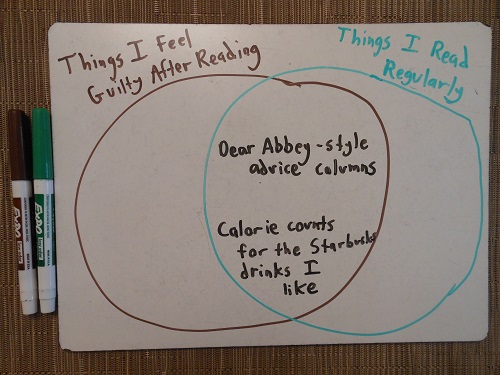 Things I Feel
Guilty After Reading
Things I Read
Regularly
Dear Abbey-style
advice columns
Calorie counts
for the Starbucks
drinks I
like
EXPO
EXPO